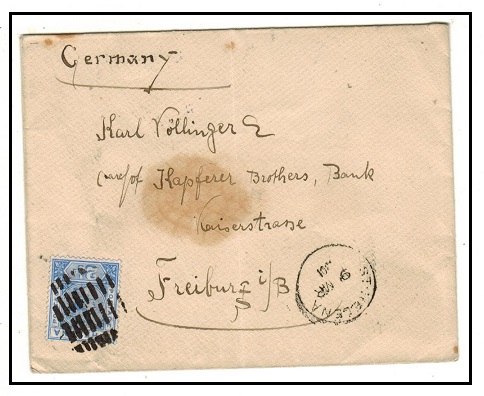 Germany
Karl Völlinger
care/of Kapferer Brothers, Bank
Kaiserstrasse
Freiburg i/B
ST. HELENA